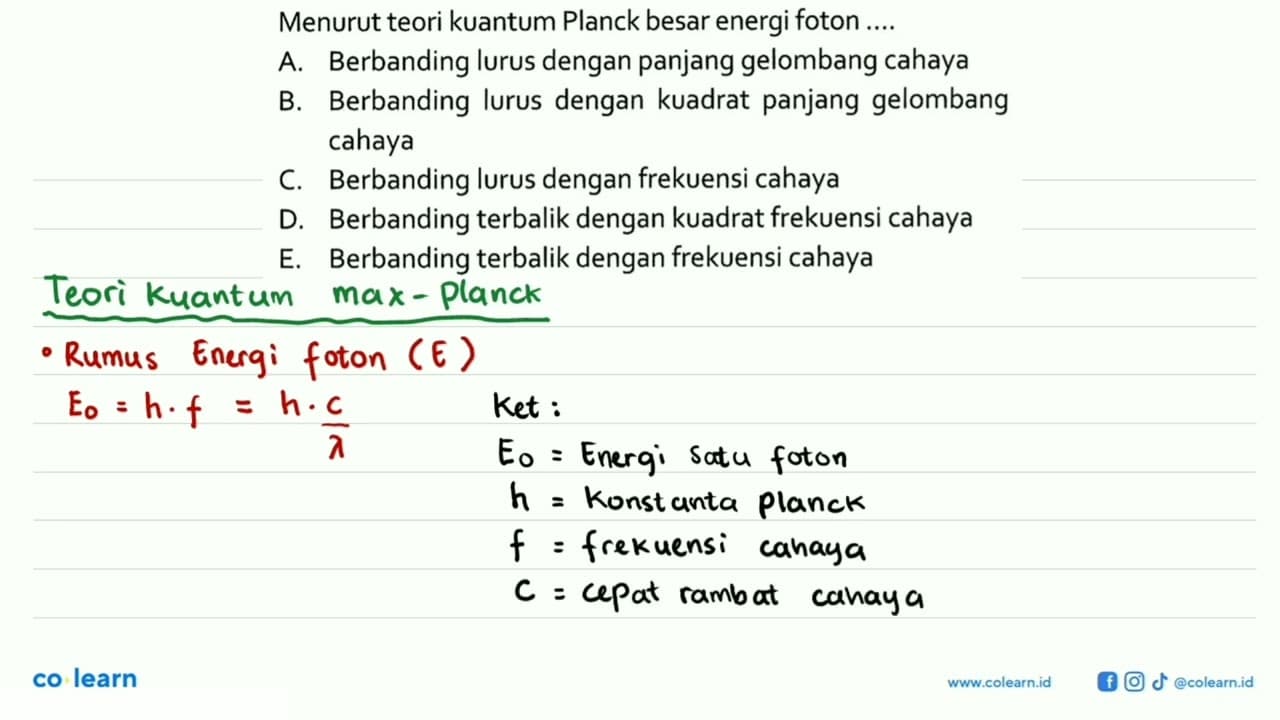 Menurut teori kuantum Planck besar energi foton ....
A. Berbanding lurus dengan panjang gelombang cahaya
B. Berbanding lurus dengan kuadrat panjang gelombang
cahaya
C. Berbanding lurus dengan frekuensi cahaya
D. Berbanding terbalik dengan kuadrat frekuensi cahaya
E. Berbanding terbalik dengan frekuensi cahaya
Teori Kuantum max-Planck
• Rumus Energi foton (E)
E₀ = h . f = h . c/λ
Ket :
E₀ = Energi satu foton
h = Konstanta Planck
f = frekuensi cahaya
C = cepat rambat cahaya
co learn
www.colearn.id
@colearn.id